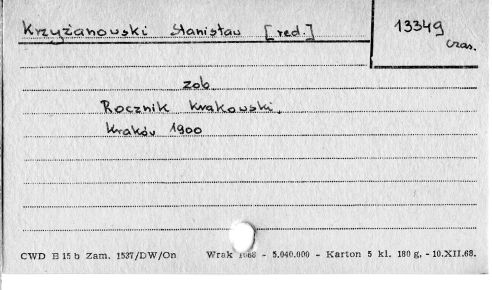 Krzyżanowski Stanisław [red.]
13349
czas.
zob.
Rocznik Krakowski.
Kraków 1900
CWD B 15 b Zam. 1537/DW/On Wrak 1968 - 5.040.000 - Karton 5 kl. 180 g. - 10.XII.68.